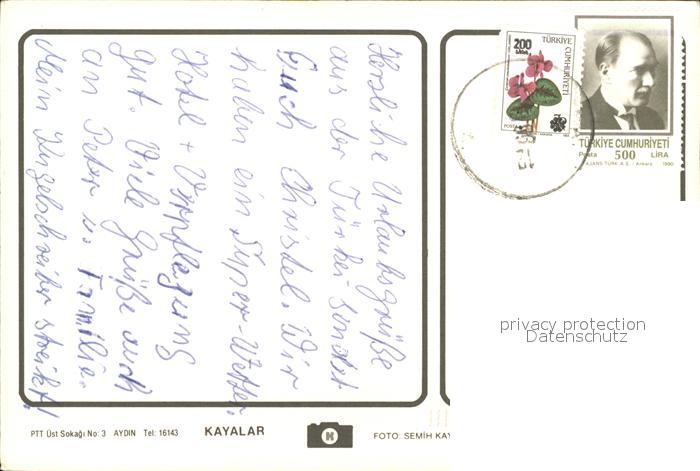 Herzliche Urlaubsgrüße
aus der Türkei sendet
Euch Christel. Wir
haben ein Super-Wetter,
Hotel + Verpflegung
gut. Viele Grüße auch
an Peter u. Familie.
Mein Kugelschreiber streikt!
200 LİRA
TÜRKİYE CUMHURİYETİ
POSTA
TÜRKİYE CUMHURİYETİ
Posta 500 LİRA
AJANS-TÜRK A.Ş. / Ankara 1990
privacy protection
Datenschutz
PTT Üst Sokağı No: 3 AYDIN Tel: 16143 KAYALAR
FOTO: SEMİH KAY